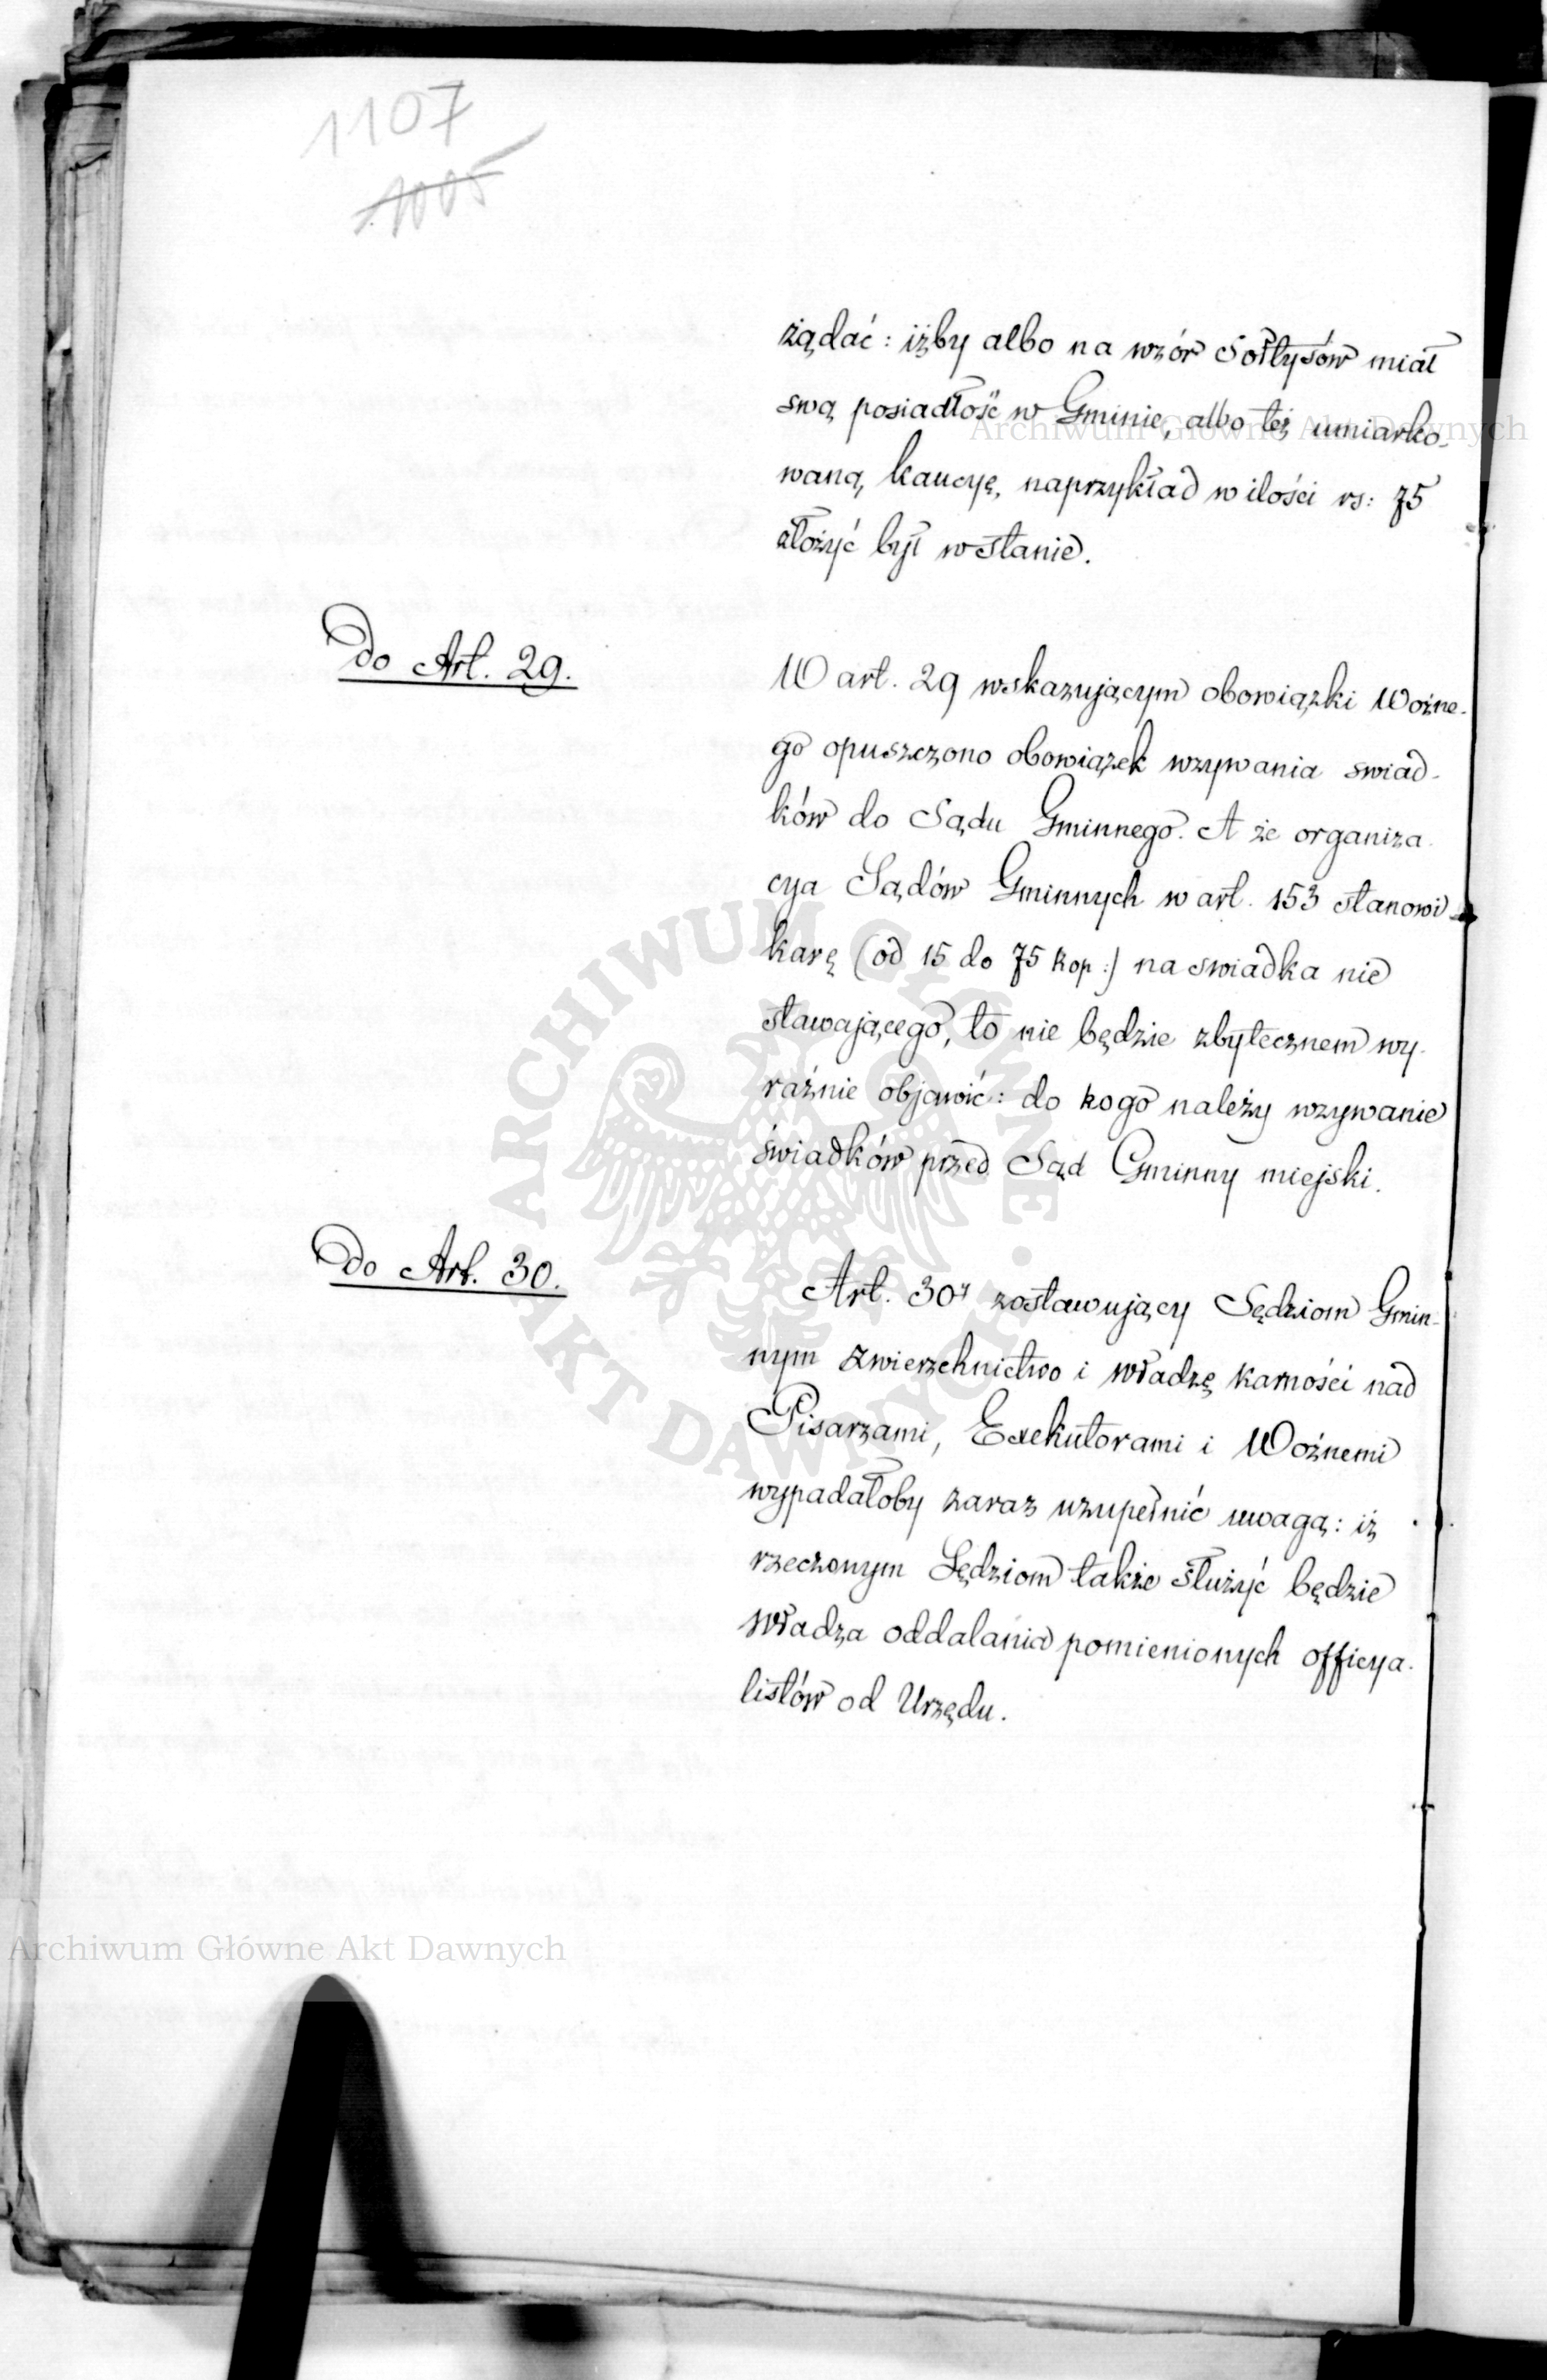 1107
1005
żądać: iżby albo na wzór Sołtysów miał
swą posiadłość w Gminie, albo też umiarko-
waną kaucyę, naprzykład w ilości rs: 75
złożyć był wstanie.
Do Art. 29.
W art. 29 wskazującym obowiązki Woźne-
go opuszczono obowiązek wzywania swiad-
ków do Sądu Gminnego. A że organiza-
cya Sądów Gminnych w art. 153 stanowi
karę (od 15 do 75 kop:) na swiadka nie
stawającego, to nie będzie zbytecznem wy-
raźnie objawić: do kogo należy wzywanie
świadków przed Sąd Gminny miejski.
Do Art. 30.
Art. 30y zostawujący Sędziom Gmin-
nym zwierzchnictwo i władzę karności nad
Pisarzami, Exekutorami i Woźnemi
wypadałoby zaraz uzupełnić uwagą: iż
rzeczonym Sędziom także służyć będzie
władza oddalania pomienionych officya-
listów od Urzędu.
Archiwum Główne Akt Dawnych
ARCHIWUM GŁÓWNE AKT DAWNYCH
Archiwum Główne Akt Dawnych